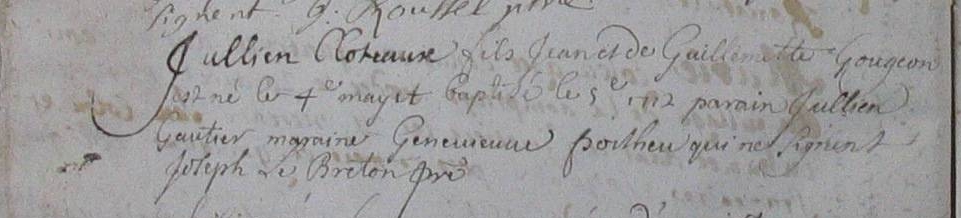 signent. g. Roussel ptre
Jullien Cloteaux fils Jean et de Guillemette Gougeon
est né le 4e may et baptisé le 5e 1712 parain Jullien
Gautier maraine Geneuieuue potheu qui ne signent
Joseph Le Breton pre